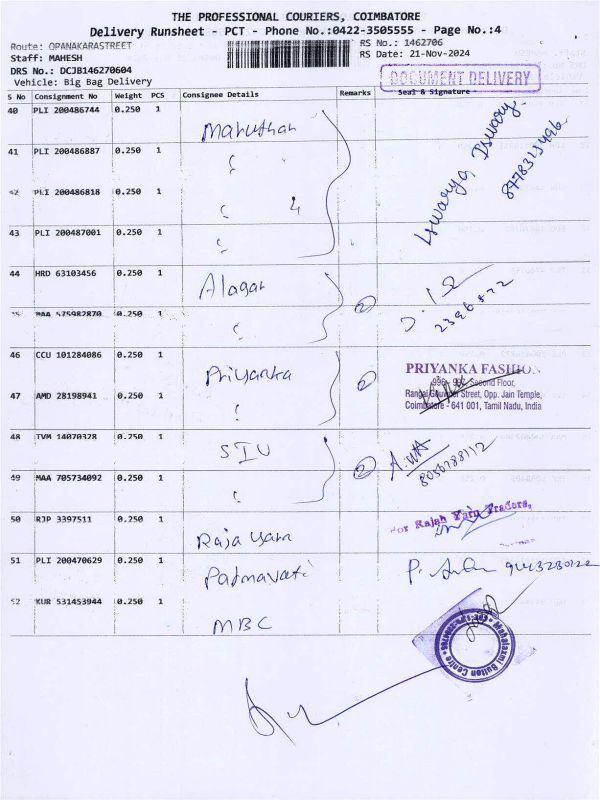 THE PROFESSIONAL COURIERS, COIMBATORE
Delivery Runsheet - PCT - Phone No.:0422-3505555 - Page No.:4
Route: OPANAKARASTREET
RS No.: 1462706
Staff: MAHESH
RS Date: 21-Nov-2024
DRS No.: DCJB146270604
Vehicle: Big Bag Delivery
DOCUMENT DELIVERY
S No Consignment No Weight PCS Consignee Details Remarks Seal & Signature
40 PLI 200486744 0.250 1 Maruthan
41 PLI 200486887 0.250 1
42 PLI 200486818 0.250 1 4
43 PLI 200487001 0.250 1
Iswarya, Iswarya
44 HRD 63103456 0.250 1 Alagar
2
MAA 575982870 0.250 1
46 CCU 101284086 0.250 1 Priyanka
2
PRIYANKA FASHION
996-997, Second Floor,
Rangai Gowder Street, Opp. Jain Temple,
Coimbatore - 641 001, Tamil Nadu, India
47 AMD 28198941 0.250 1
48 TVM 14070328 0.250 1
2
49 MAA 705734092 0.250 1
50 RJP 3397511 0.250 1 Raja yarn
For Rajah Yarn Traders,
51 PLI 200470629 0.250 1 Padmavati
52 KUR 531453944 0.250 1 MBC
Mahalaxmi Button Centre